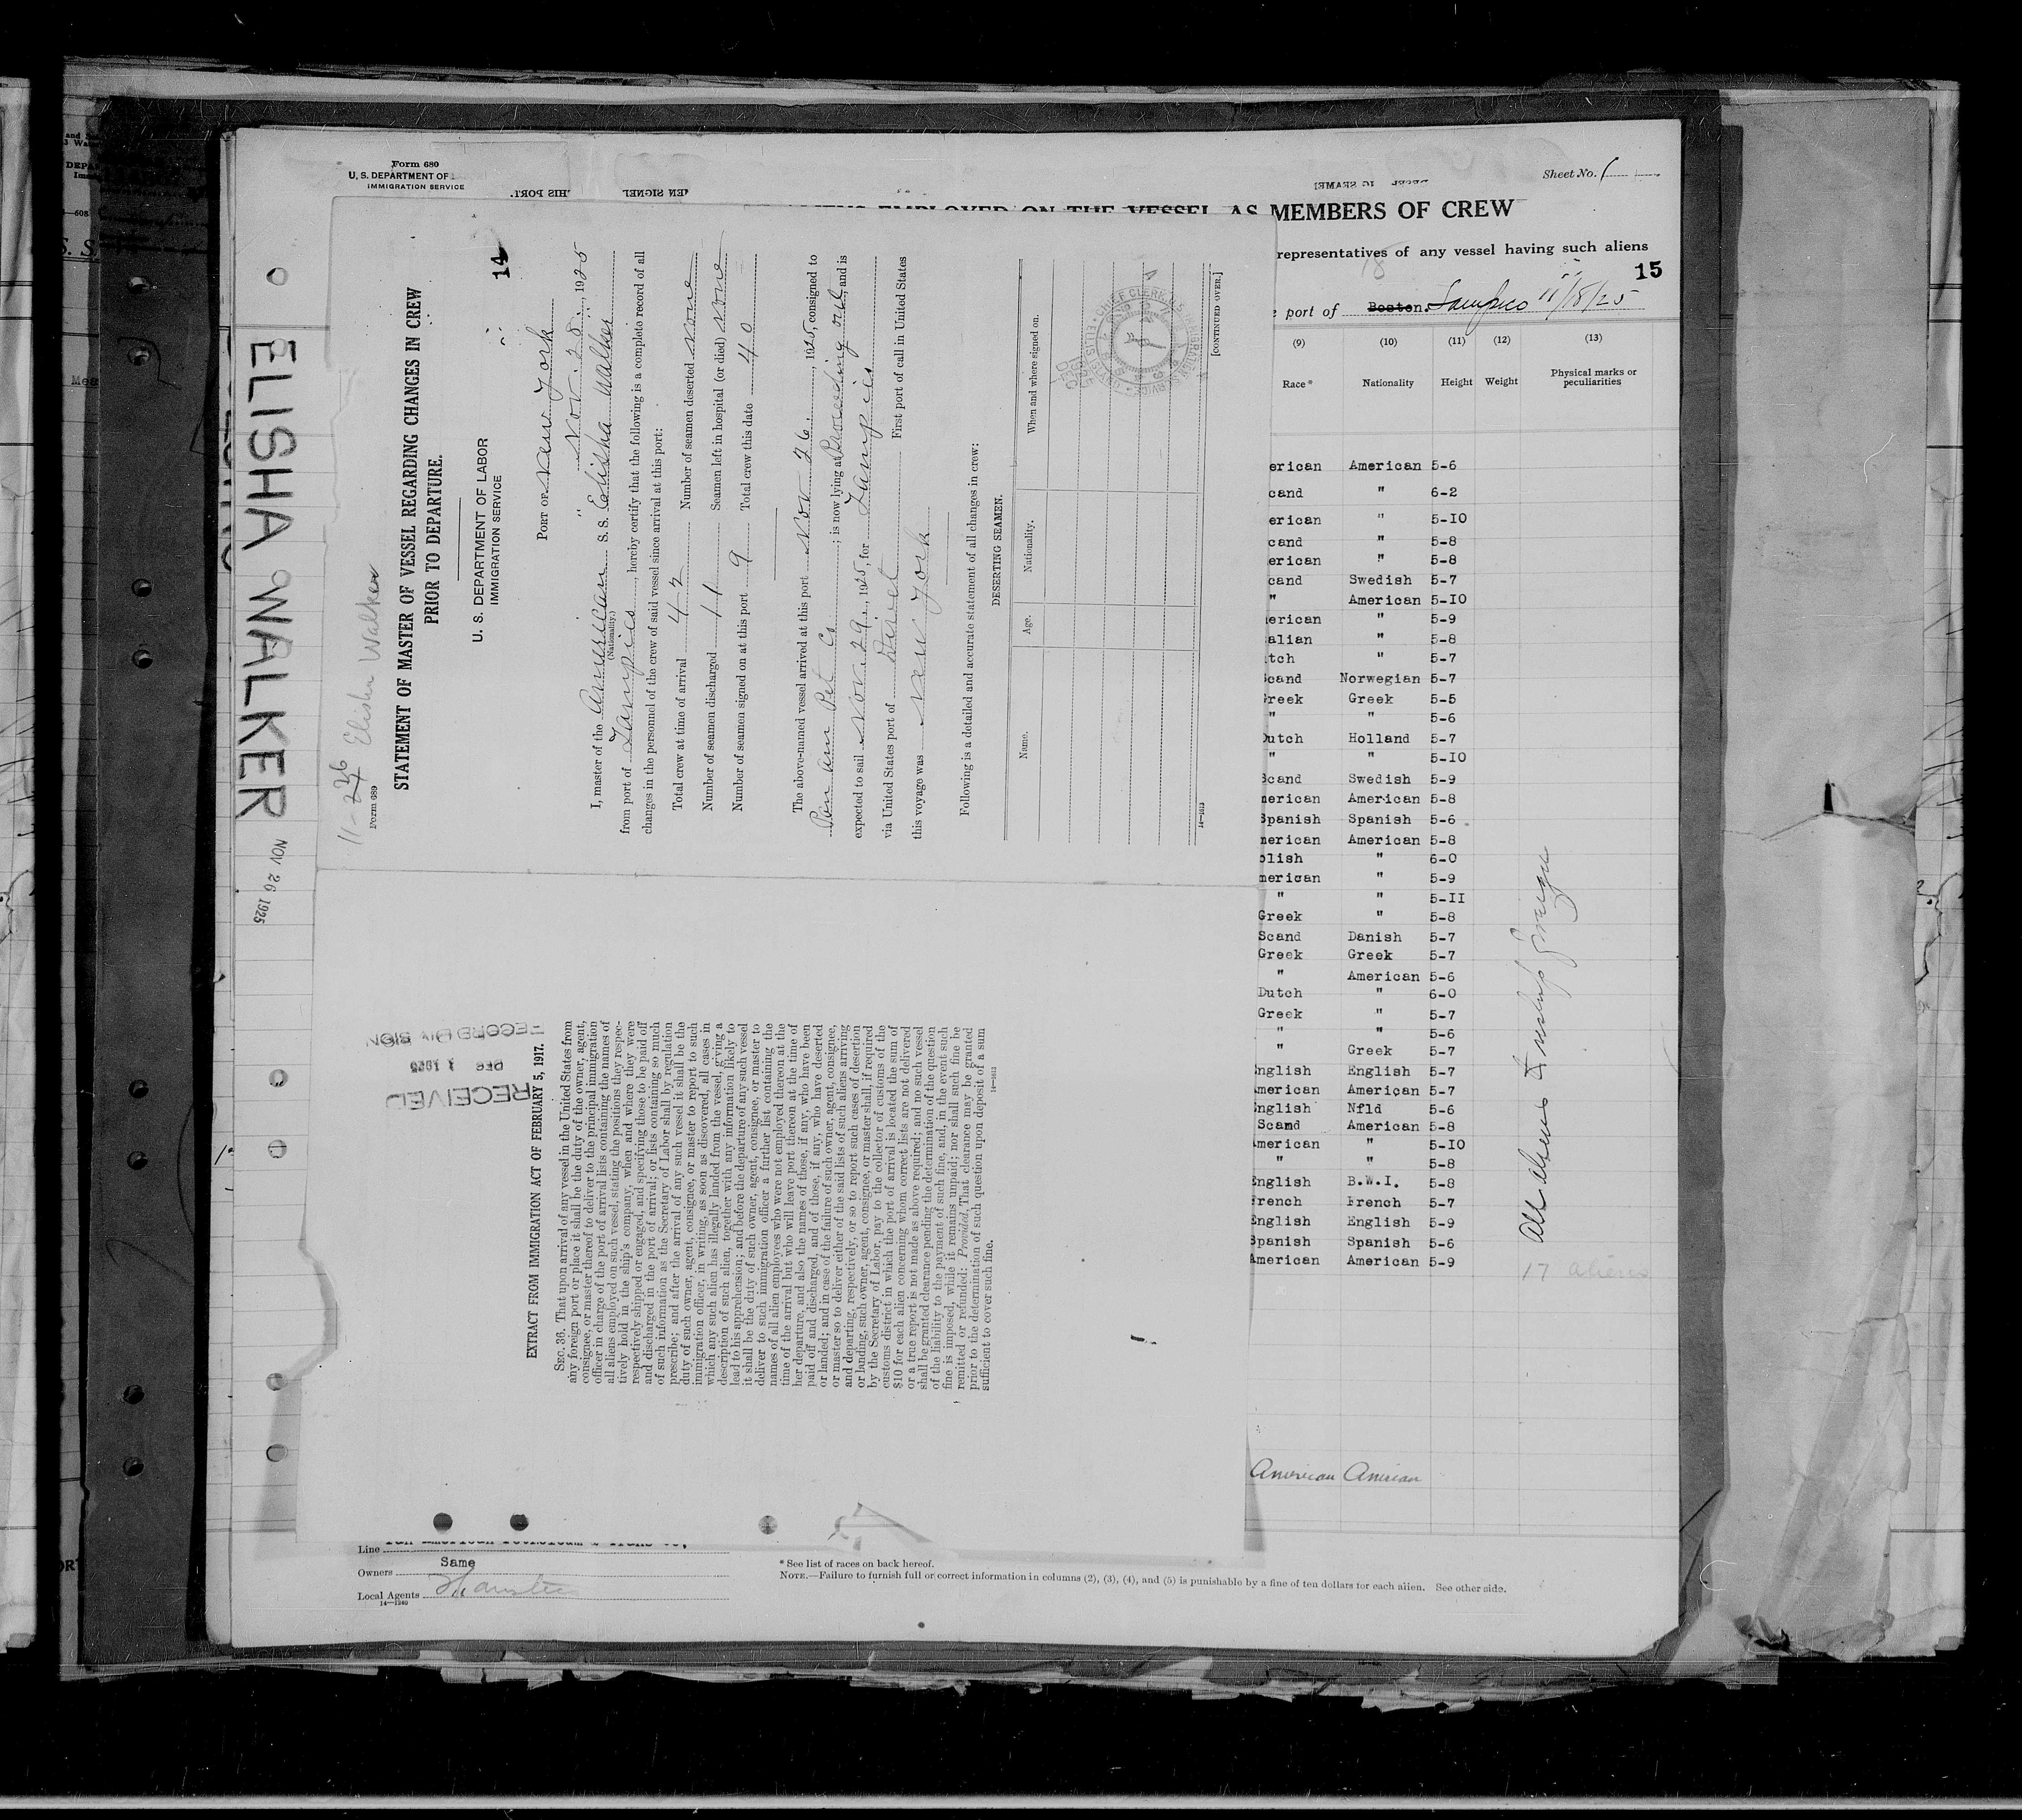 Form 680
U. S. DEPARTMENT OF
IMMIGRATION SERVICE
Sheet No. 1
AS MEMBERS OF CREW
representatives of any vessel having such aliens
15
port of Boston. Tampico 11/18/25
(9) (10) (11) (12) (13)
Race* Nationality Height Weight Physical marks or
peculiarities
erican American 5-6
cand " 6-2
erican " 5-10
cand " 5-8
erican " 5-8
cand Swedish 5-7
" American 5-10
erican " 5-9
alian " 5-8
tch " 5-7
cand Norwegian 5-7
reek Greek 5-5
" " 5-6
utch Holland 5-7
" " 5-10
Scand Swedish 5-9
merican American 5-8
Spanish Spanish 5-6
merican American 5-8
olish " 6-0
merican " 5-9
" " 5-11
Greek " 5-8
Scand Danish 5-7
Greek Greek 5-7
" American 5-6
Dutch " 6-0
Greek " 5-7
" " 5-6
" Greek 5-7
English English 5-7
American American 5-7
English Nfld 5-6
Scand American 5-8
American " 5-10
" " 5-8
English B.W.I. 5-8
French French 5-7
English English 5-9
Spanish Spanish 5-6
American American 5-9
All aliens to reship foreign
17 aliens
American American
ELISHA WALKER NOV 26 1925
11-26 Elisha Walker
Form 689
STATEMENT OF MASTER OF VESSEL REGARDING CHANGES IN CREW
PRIOR TO DEPARTURE.
14
U. S. DEPARTMENT OF LABOR
IMMIGRATION SERVICE
PORT OF New York
Nov. 28, 1925
I, master of the American S. S. Elisha Walker
(Nationality.)
from port of Tampico, hereby certify that the following is a complete record of all
changes in the personnel of the crew of said vessel since arrival at this port:
Total crew at time of arrival 42 Number of seamen deserted None
Number of seamen discharged 11 Seamen left in hospital (or died) None
Number of seamen signed on at this port 9 Total crew this date 40
The above-named vessel arrived at this port Nov 26, 1925, consigned to
Pan Am Pet Co; is now lying at Proceeding out, and is
expected to sail Nov. 29, 1925, for Tampico
via United States port of Direct First port of call in United States
this voyage was New York
Following is a detailed and accurate statement of all changes in crew:
DESERTING SEAMEN.
Name. Age. Nationality. When and where signed on.
14—1613
[CONTINUED OVER.]
RECEIVED
DEC 1 1925
RECORD DIVISION
EXTRACT FROM IMMIGRATION ACT OF FEBRUARY 5, 1917.
SEC. 36. That upon arrival of any vessel in the United States from
any foreign port or place it shall be the duty of the owner, agent,
consignee, or master thereof to deliver to the principal immigration
officer in charge of the port of arrival lists containing the names of
all aliens employed on such vessel, stating the positions they respec-
tively hold in the ship's company, when and where they were
respectively shipped or engaged, and specifying those to be paid off
and discharged in the port of arrival; or lists containing so much
of such information as the Secretary of Labor shall by regulation
prescribe; and after the arrival of any such vessel it shall be the
duty of such owner, agent, consignee, or master to report to such
immigration officer, in writing, as soon as discovered, all cases in
which any such alien has illegally landed from the vessel, giving a
description of such alien, together with any information likely to
lead to his apprehension; and before the departure of any such vessel
it shall be the duty of such owner, agent, consignee, or master to
deliver to such immigration officer a further list containing the
names of all alien employees who were not employed thereon at the
time of the arrival but who will leave port thereon at the time of
her departure, and also the names of those, if any, who have been
paid off and discharged, and of those, if any, who have deserted
or landed; and in case of the failure of such owner, agent, consignee,
or master so to deliver either of the said lists of such aliens arriving
and departing, respectively, or so to report such cases of desertion
or landing, such owner, agent, consignee, or master shall, if required
by the Secretary of Labor, pay to the collector of customs of the
customs district in which the port of arrival is located the sum of
$10 for each alien concerning whom correct lists are not delivered
or a true report is not made as above required; and no such vessel
shall be granted clearance pending the determination of the question
of the liability to the payment of such fine, and, in the event such
fine is imposed, while it remains unpaid; nor shall such fine be
remitted or refunded: Provided, That clearance may be granted
prior to the determination of such question upon deposit of a sum
sufficient to cover such fine.
14—1613
Line
Owners Same
Local Agents
14—1240
* See list of races on back hereof.
NOTE.—Failure to furnish full or correct information in columns (2), (3), (4), and (5) is punishable by a fine of ten dollars for each alien. See other side.